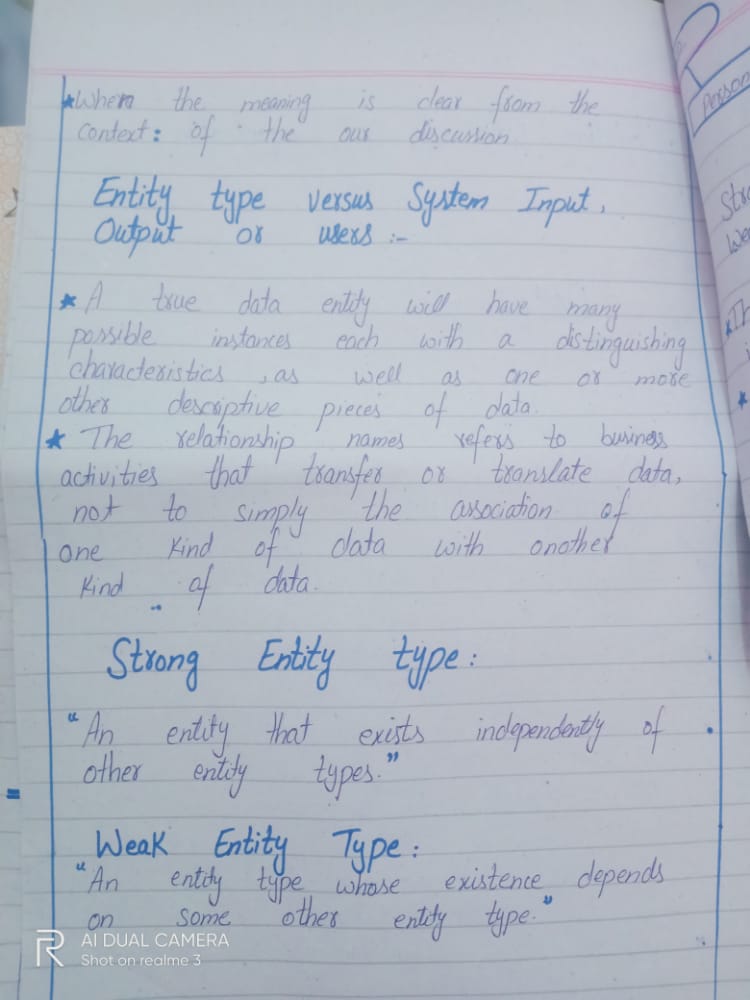 ★When the meaning is clear from the
context: of the our discussion
Entity type versus System Input,
Output or users :-
★ A true data entity will have many
possible instances each with a distinguishing
characteristics, as well as one or more
other descriptive pieces of data.
★ The relationship names refers to business
activities that transfer or translate data,
not to simply the association of
one kind of data with another
kind of data.
Strong Entity type:
"An entity that exists independently of
other entity types."
Weak Entity Type:
"An entity type whose existence depends
on some other entity type."
R AI DUAL CAMERA
Shot on realme 3
Person